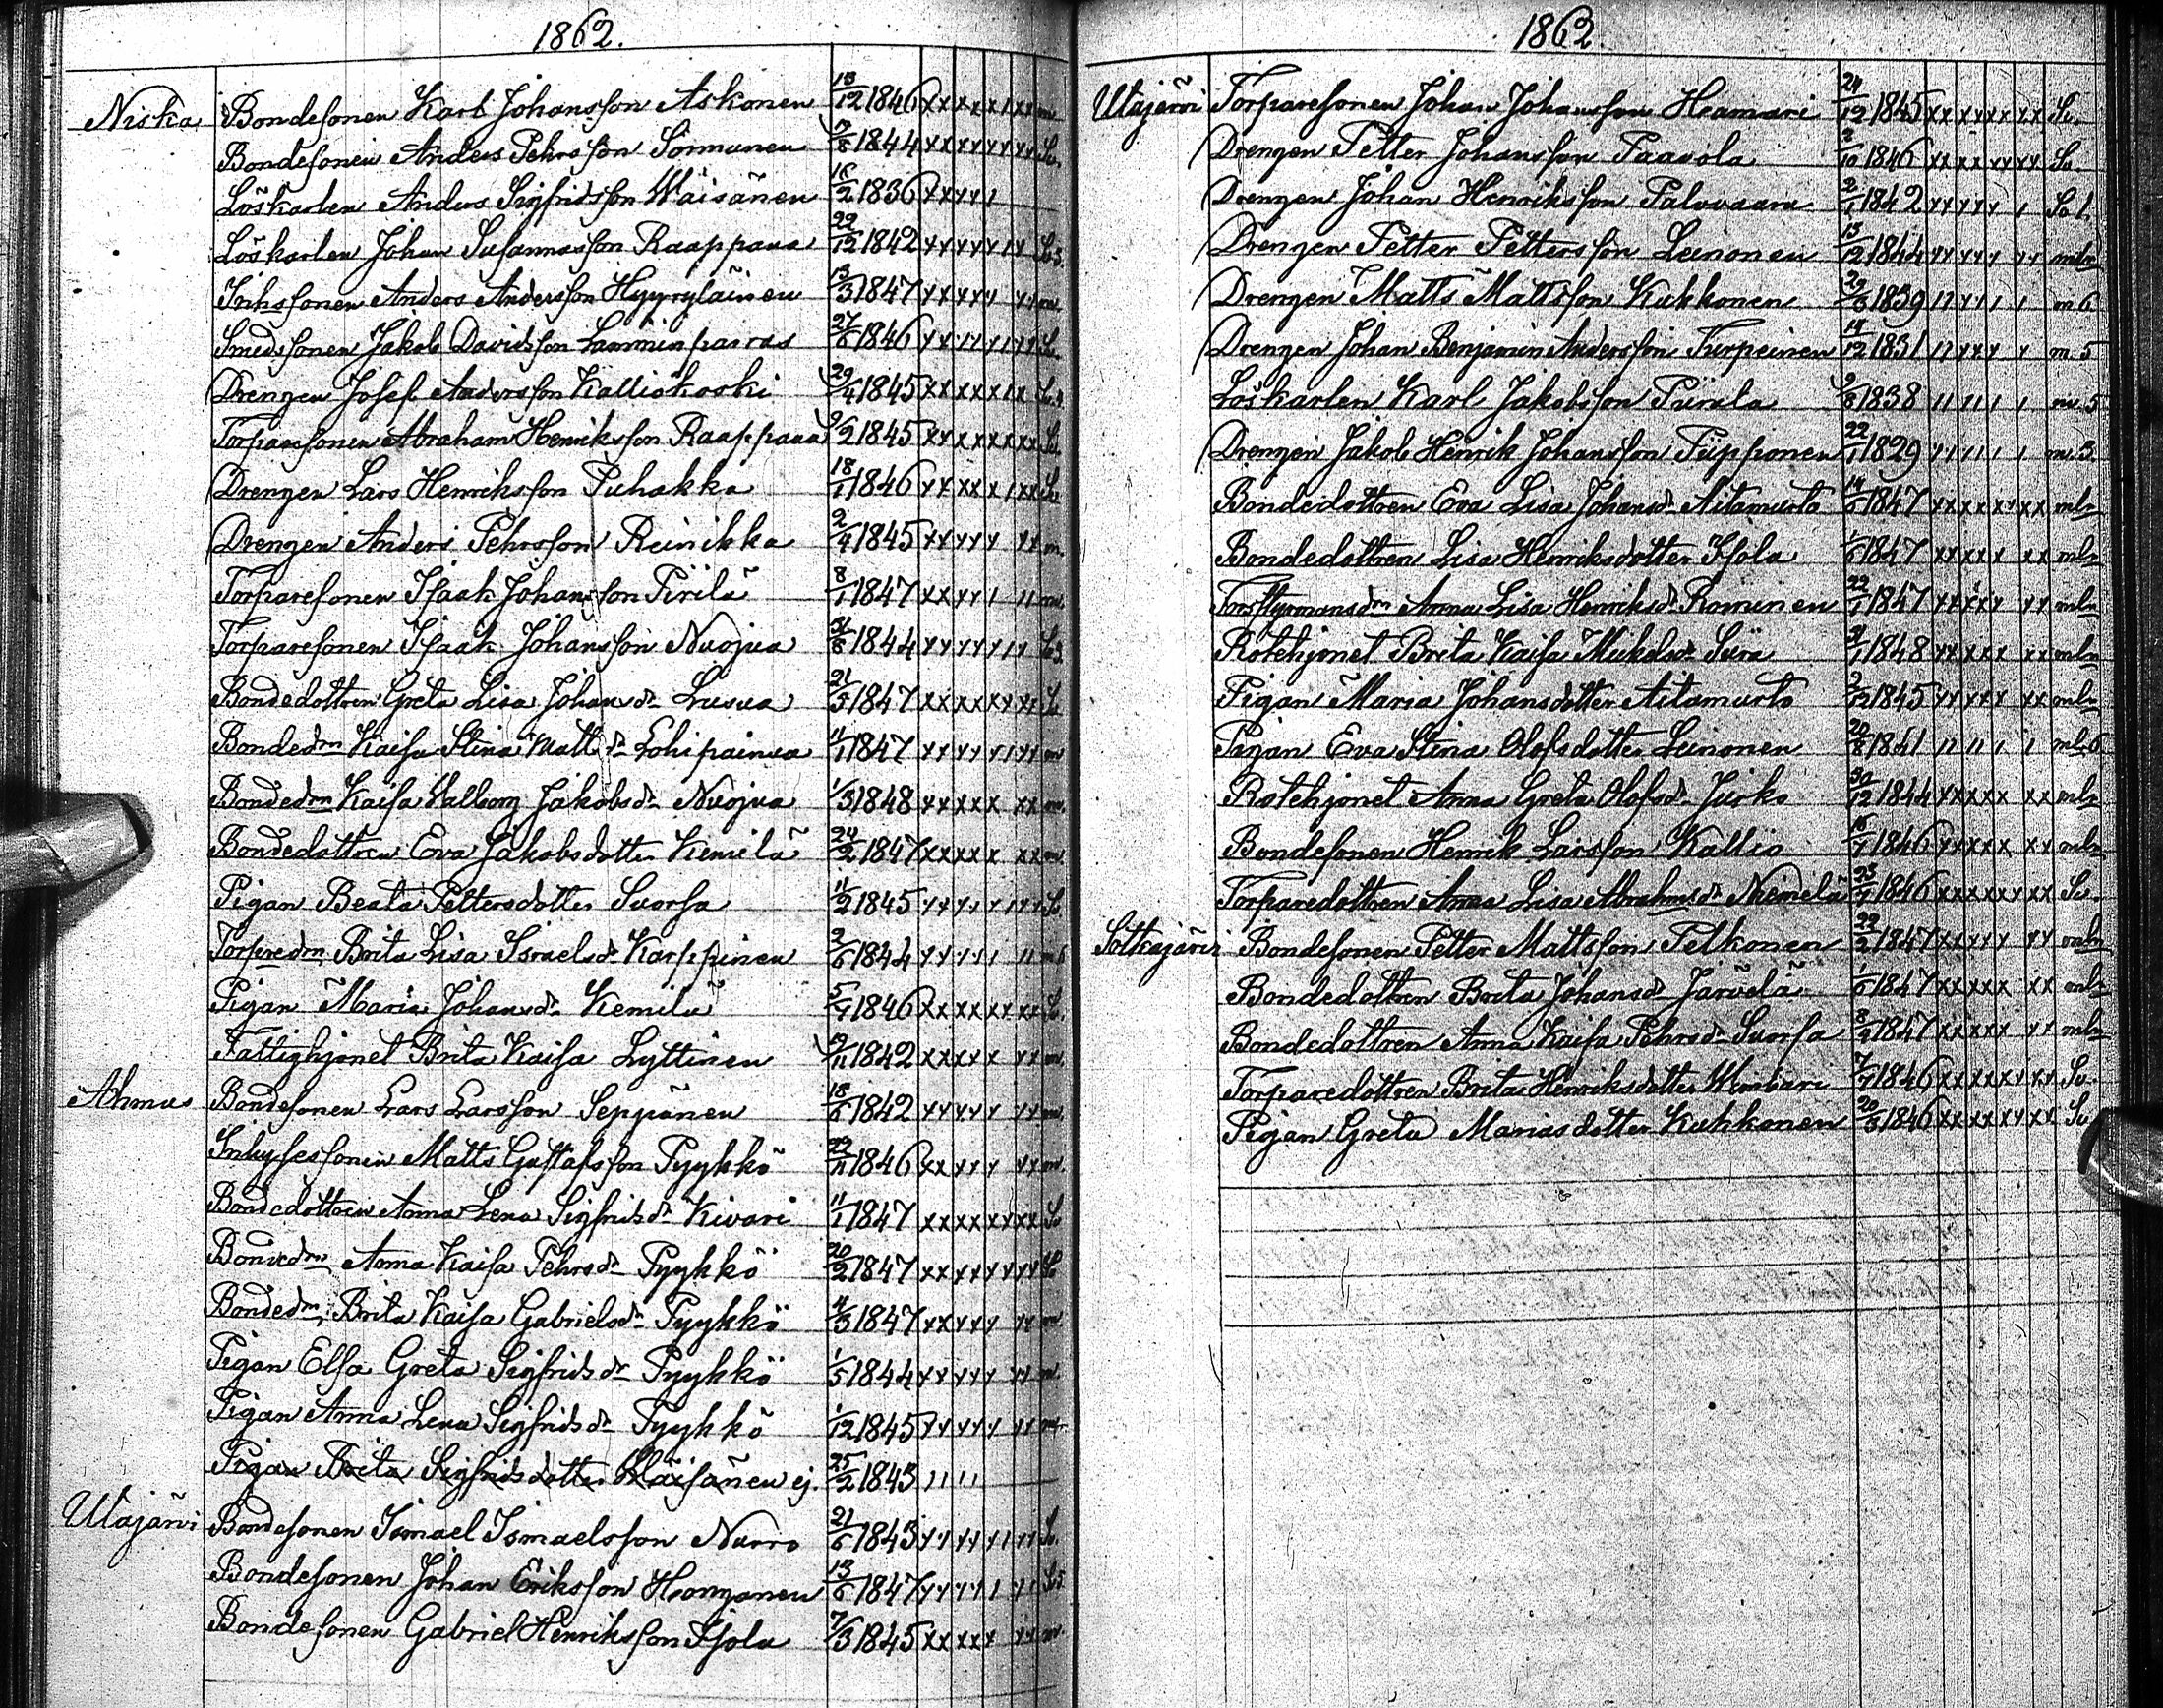 1862.
Niska Bondesonen Karl Johansson Askonen 13/12 1846 xx xx x 1 xx m
Bondesonen Anders Pehrsson Sormunen 1844 xx xx xx xx Sv.
Löskarlen Anders Sigfridsson Wäisänen 16/2 1836 xx xx 1
Löskarlen Johan Susannasson Raappana 22/12 1842 xx xx xx 1x Sv 3.
Inhssonen Anders Andersson Hyyryläinen 13/3 1847 xx xx x xx m.
Smedssonen Jakob Davidsson Lamminparras 27/6 1846 xx 11 xx xx Sv.
Drengen Josef Andersson Kalliokoski 29/4 1845 xx xx x 1x Sv.
Torparesonen Abraham Henriksson Raappana 9/2 1845 xx xx xx xx Sv.
Drengen Lars Henriksson Puhakka 18/1 1846 xx xx x 1 xx Sv
Drengen Anders Pehrsson Reinikka 2/4 1845 xx xx x xx m.
Torparesonen Isaak Johansson Pirilä 8/1 1847 xx xx 1 11 m.
Torparesonen Isaak Johansson Nuojua 31/8 1844 xx xx x 1x Sv 3.
Bondedottren Greta Lisa Johansdr Lusua 21/5 1847 xx xx xx xx Sv
Bondedrn Kaisa Stina Mattsdr Lohipainua 1847 xx xx x 1 xx m
Bondedrn Kaisa Walborg Jakobsdr Nuojua 1/3 1848 xx xx x xx m.
Bondedottren Eva Jakobsdotter Kemilä 24/2 1847 xx xx x xx m.
Pigan Beata Pettersdotter Suorsa 11/2 1845 xx xx x 1 xx Sv
Torparedrn Brita Lisa Ismaelsdr Karppinen 2/6 1844 xx 11 1 11 m 6
Pigan Maria Johansdr Kemilä 5/4 1846 xx xx xx xx Sv.
Fattighjonet Brita Kaisa Lyttinen 19/11 1842 xx xx x xx m.
Ahmas Bondesonen Lars Larsson Seppänen 18/6 1842 xx xx x xx m.
Inhysessonen Matts Gustafsson Pyykkö 22/11 1846 xx xx x xx m.
Bondedottren Anna Lena Sigfridsdr Kivari 11/1 1847 xx xx xx xx Sv
Bondedrn Anna Kaisa Pehrsdr Pyykkö 20/2 1847 xx xx xx xx Sv
Bondedrn Brita Kaisa Gabrielsdr Pyykkö 4/3 1847 xx xx x xx m.
Pigan Elsa Greta Sigfridsdr Pyykkö 1/5 1844 xx xx x xx m.
Pigan Anna Lena Sigfridsdr Pyykkö 1/12 1845 xx xx x xx m.
Pigan Brita Sigfridsdotter Wäisänen ej. 25/2 1843 11 11
Utajärvi Bondesonen Ismael Ismaelsson Nurro 21/6 1843 xx xx x 1 xx Sv.
Bondesonen Johan Eriksson Honganen 13/6 1847 xx xx 1 xx Sv 5
Bondesonen Gabriel Henriksson Isola 7/3 1845 xx xx x xx m.
1862.
Utajärvi Torparesonen Johan Johansson Hamari 24/12 1845 xx xx xx xx Sv.
Drengen Petter Johansson Paavola 2/10 1846 xx xx xx xx Sv.
Drengen Johan Henriksson Palovaara 2/1 1842 xx xx x 1 Sv 1.
Drengen Petter Pettersson Leinonen 13/12 1844 xx xx x xx mln
Drengen Matts Mattsson Kukkonen 1839 11 x1 1 1 m 6.
Drengen Johan Benjamin Andersson Turpeinen 14/12 1831 11 xx x x m. 5
Löskarlen Karl Jakobsson Piirala 9/8 1838 11 11 1 1 m. 5
Drengen Jakob Henrik Johansson Piipponen 22/1 1829 xx 11 1 1 m. 3.
Bondedottren Eva Lisa Johansdr Aitamurto 1847 xx xx xx xx mln
Bondedottren Lisa Henriksdotter Isola 1/6 1847 xx xx x xx mln
Forsstyrmansdrn Anna Lisa Henriksdr Rominen 22/1 1847 xx xx x xx mln
Rotehjonet Brita Kaisa Mickelsdr Siira 31/1 1848 xx xx x xx mln
Pigan Maria Johansdotter Aitamurto 2/12 1845 xx xx x xx mln
Pigan Eva Stina Olofsdotter Leinonen 20/8 1841 11 11 1 1 ml. 6
Rotehjonet Anna Greta Olofsdr Jurko 30/12 1844 xx xx x xx mln
Bondesonen Henrik Larsson Kallio 16/7 1846 xx xx x xx mln
Torparedottren Anna Lisa Abrahmsdr Niemelä 23/7 1846 xx xx xx xx Sv.
Sotkajärvi Bondesonen Petter Mattsson Pelkonen 22/2 1847 xx xx x xx mln
Bondedottren Brita Johansdr Järvelä 1/6 1847 xx xx x xx mln
Bondedottren Anna Kaisa Pehrsdr Suorsa 8/2 1847 xx xx x xx mln
Torparedottren Brita Henriksdotter 7/7 1846 xx xx xx xx Sv.
Pigan Greta Mariasdotter Kukkonen 20/3 1846 xx xx xx xx Sv.